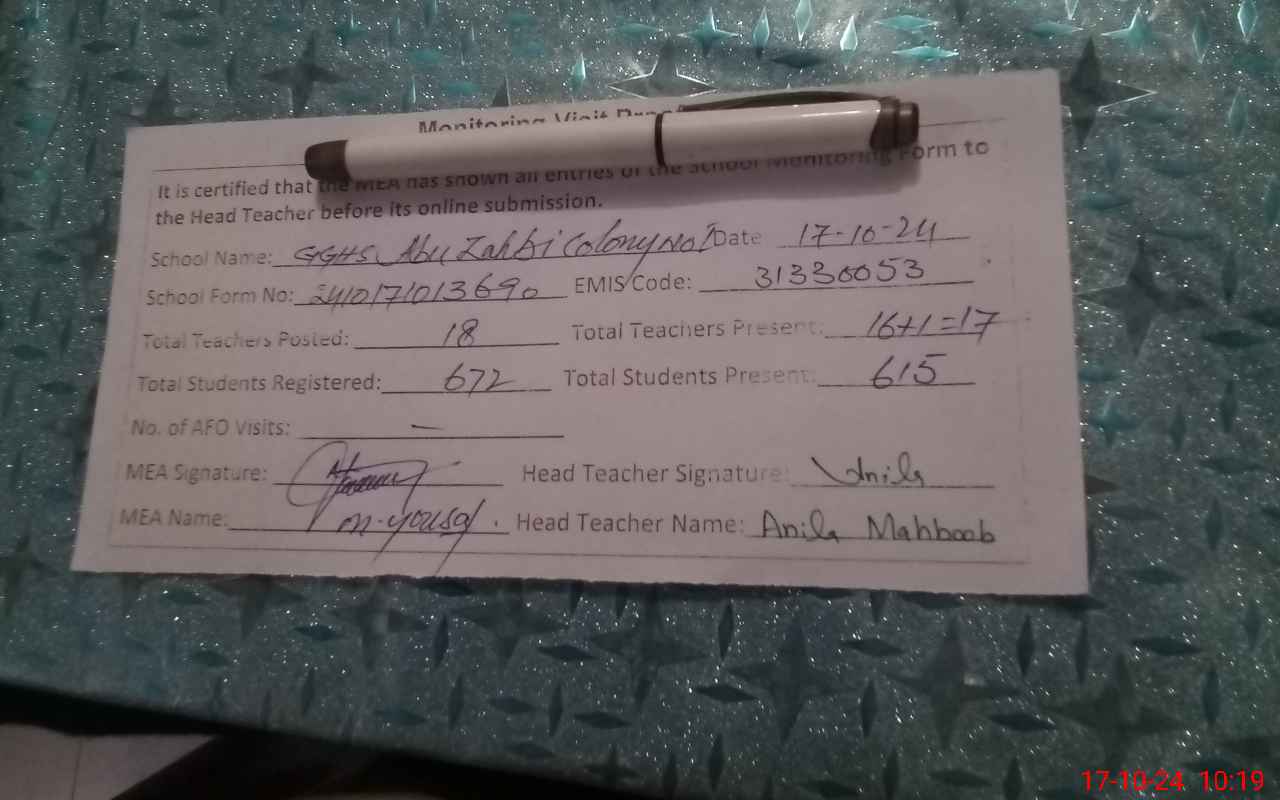 Monitoring Visit
It is certified that the MEA has shown all entries of the School Monitoring Form to
the Head Teacher before its online submission.
School Name: GGHS Abu Zahbi Colony No 1 Date 17-10-24
School Form No: 2410171013690 EMIS Code: 31330053
Total Teachers Posted: 18 Total Teachers Present: 16+1=17
Total Students Registered: 672 Total Students Present: 615
No. of AFO Visits: —
MEA Signature: Head Teacher Signature: Anila
MEA Name: M. Yousaf. Head Teacher Name: Anila Mahboob
17-10-24 10:19